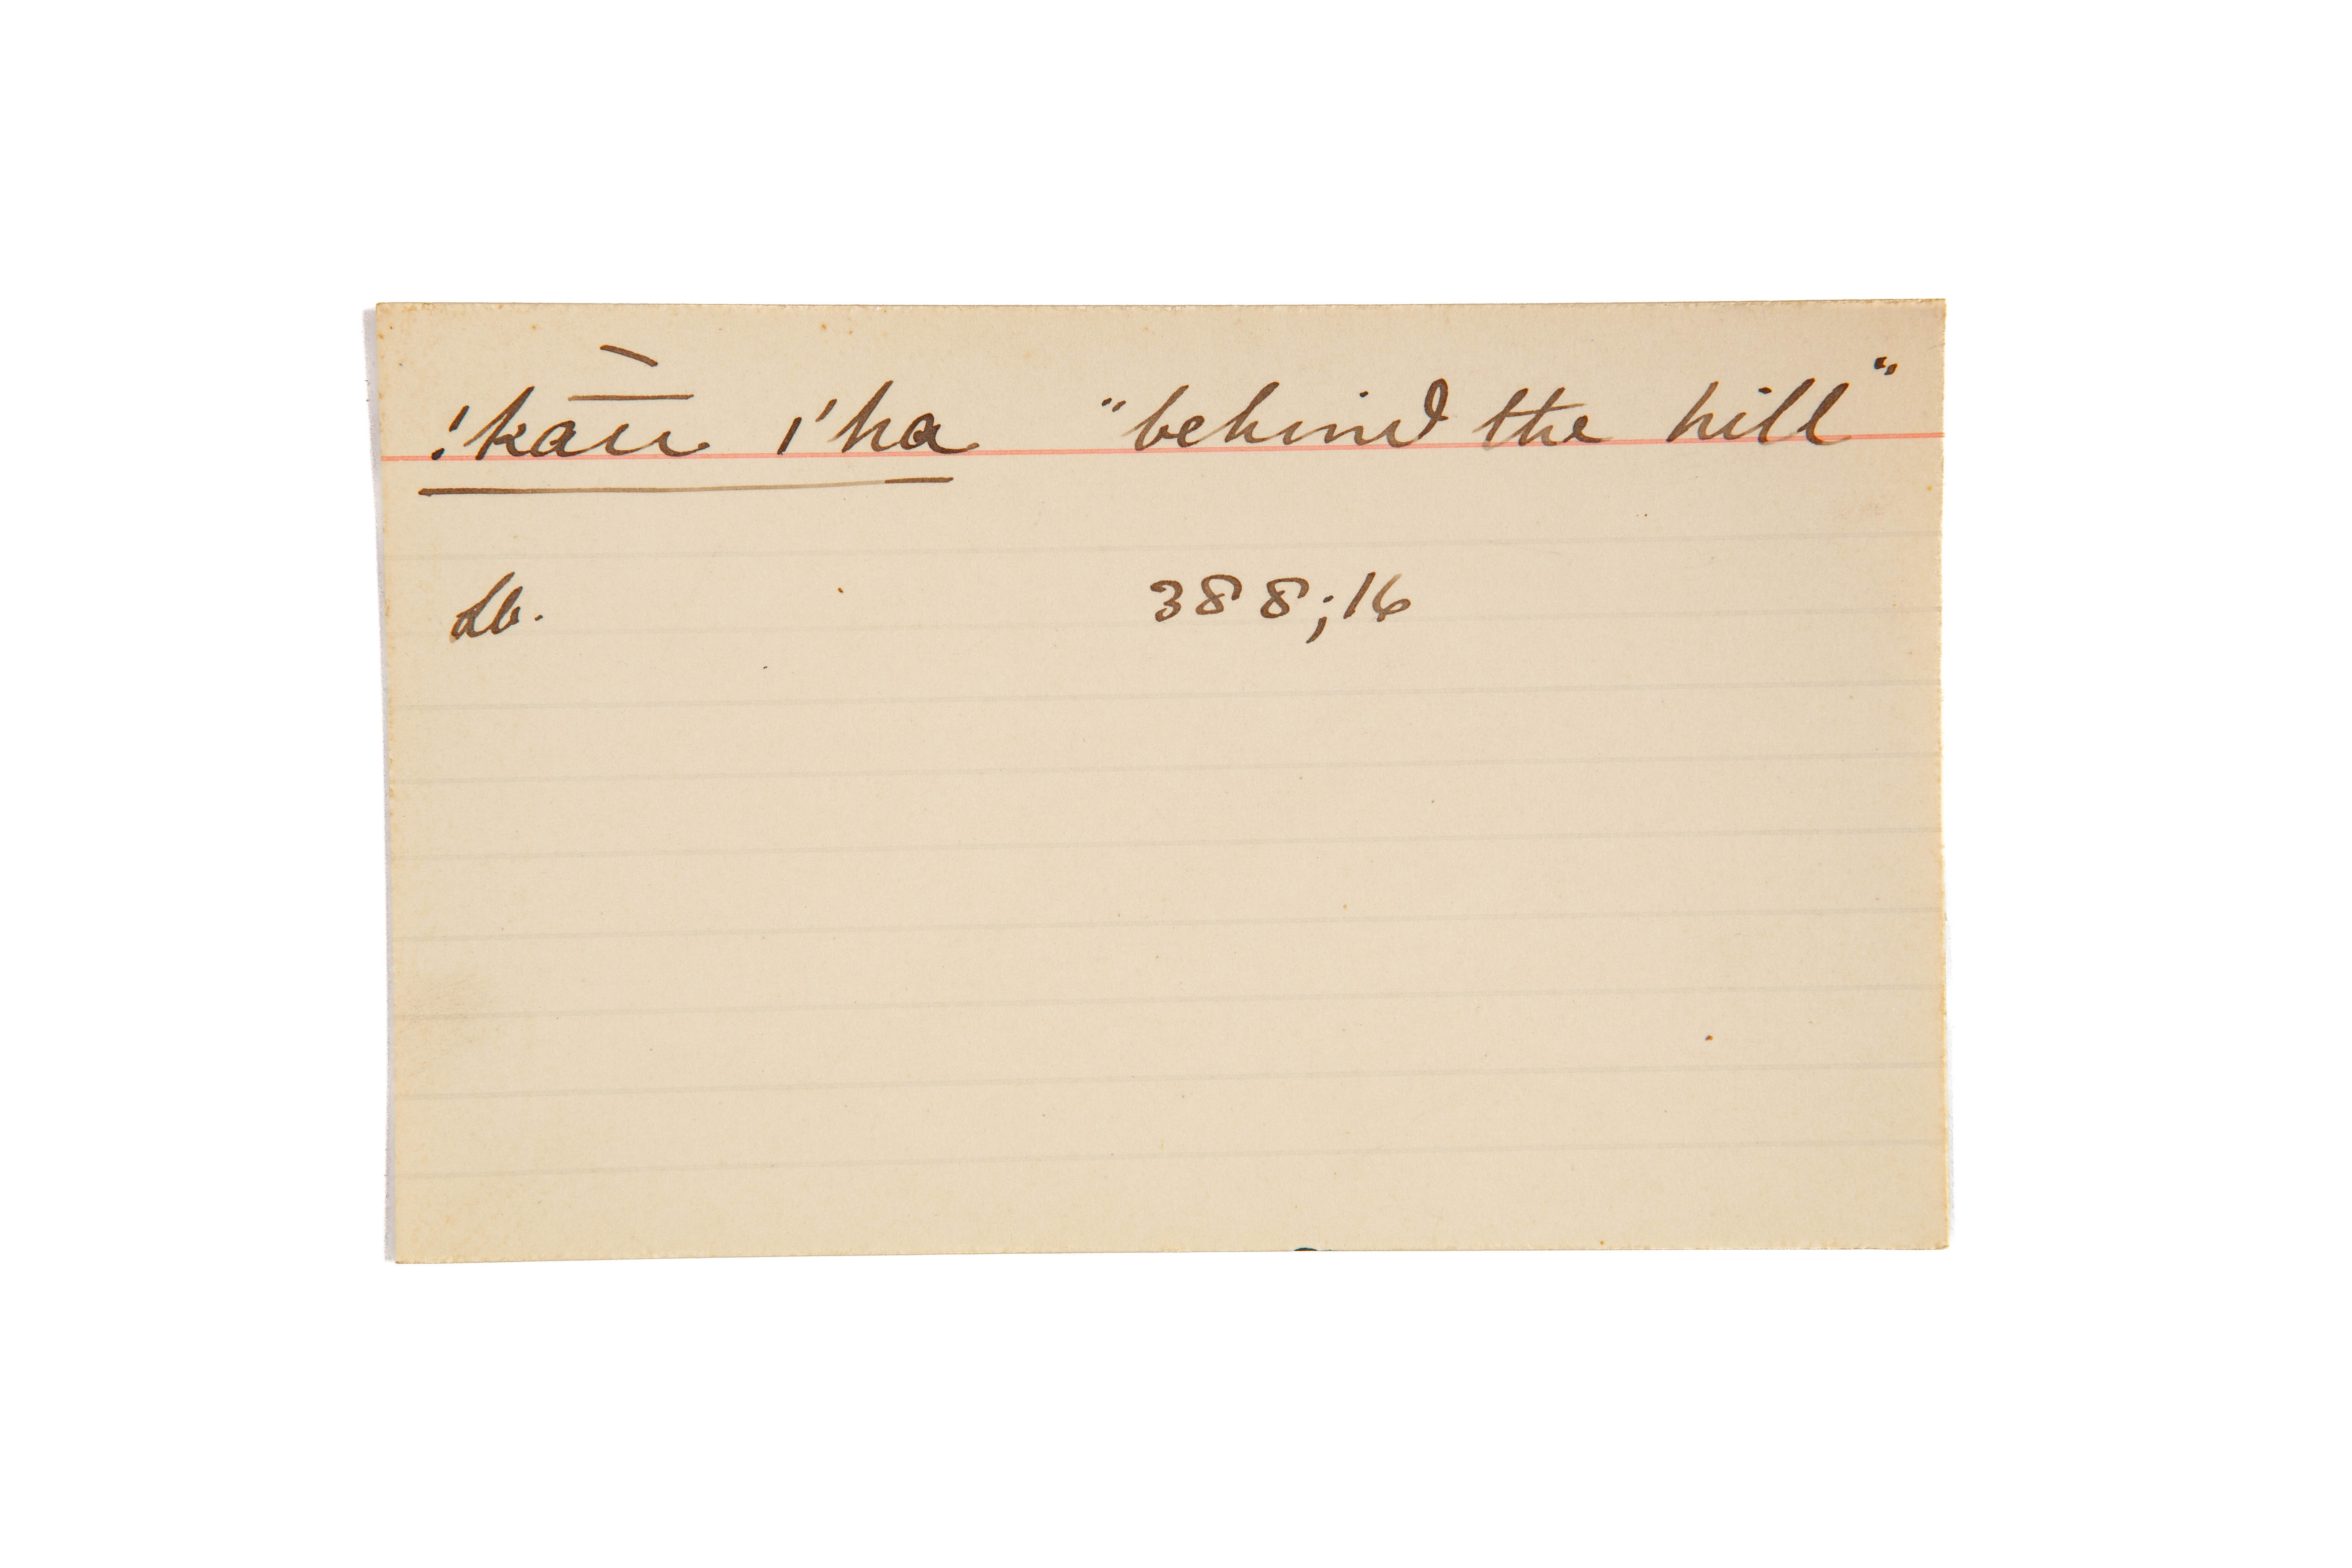 !kau̅̀ i'ha "behind the hill"
Lb. 388;16